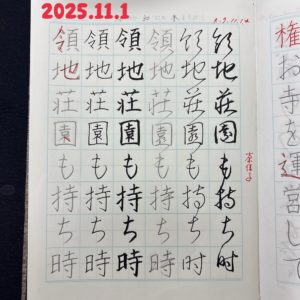 2025.11.1
権お寺を運営して
領地荘園も持ち時
領地荘園も持ち時
領地荘園も持ち時
領地荘園も持ち時
領地荘園も持ち時
領地荘園も持ち時